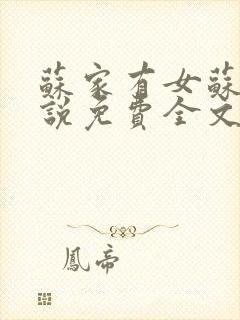 蘇家有女蘇
說免費全文
鳳帝